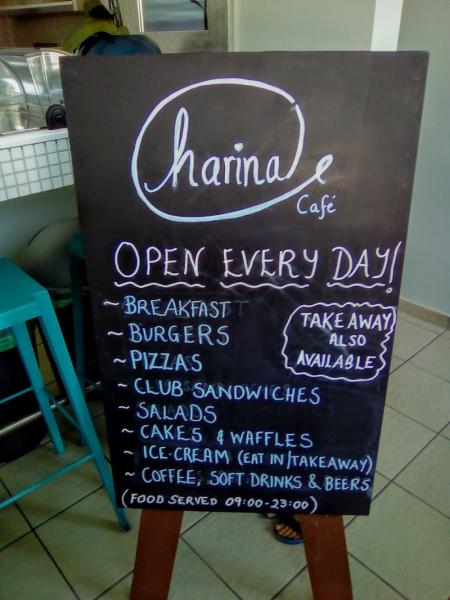 harina
Café
OPEN EVERY DAY!
~ BREAKFAST
~ BURGERS
~ PIZZAS
~ CLUB SANDWICHES
~ SALADS
~ CAKES & WAFFLES
~ ICE-CREAM (EAT IN/TAKEAWAY)
~ COFFEE, SOFT DRINKS & BEERS
(FOOD SERVED 09:00-23:00)
TAKE AWAY
ALSO
AVAILABLE